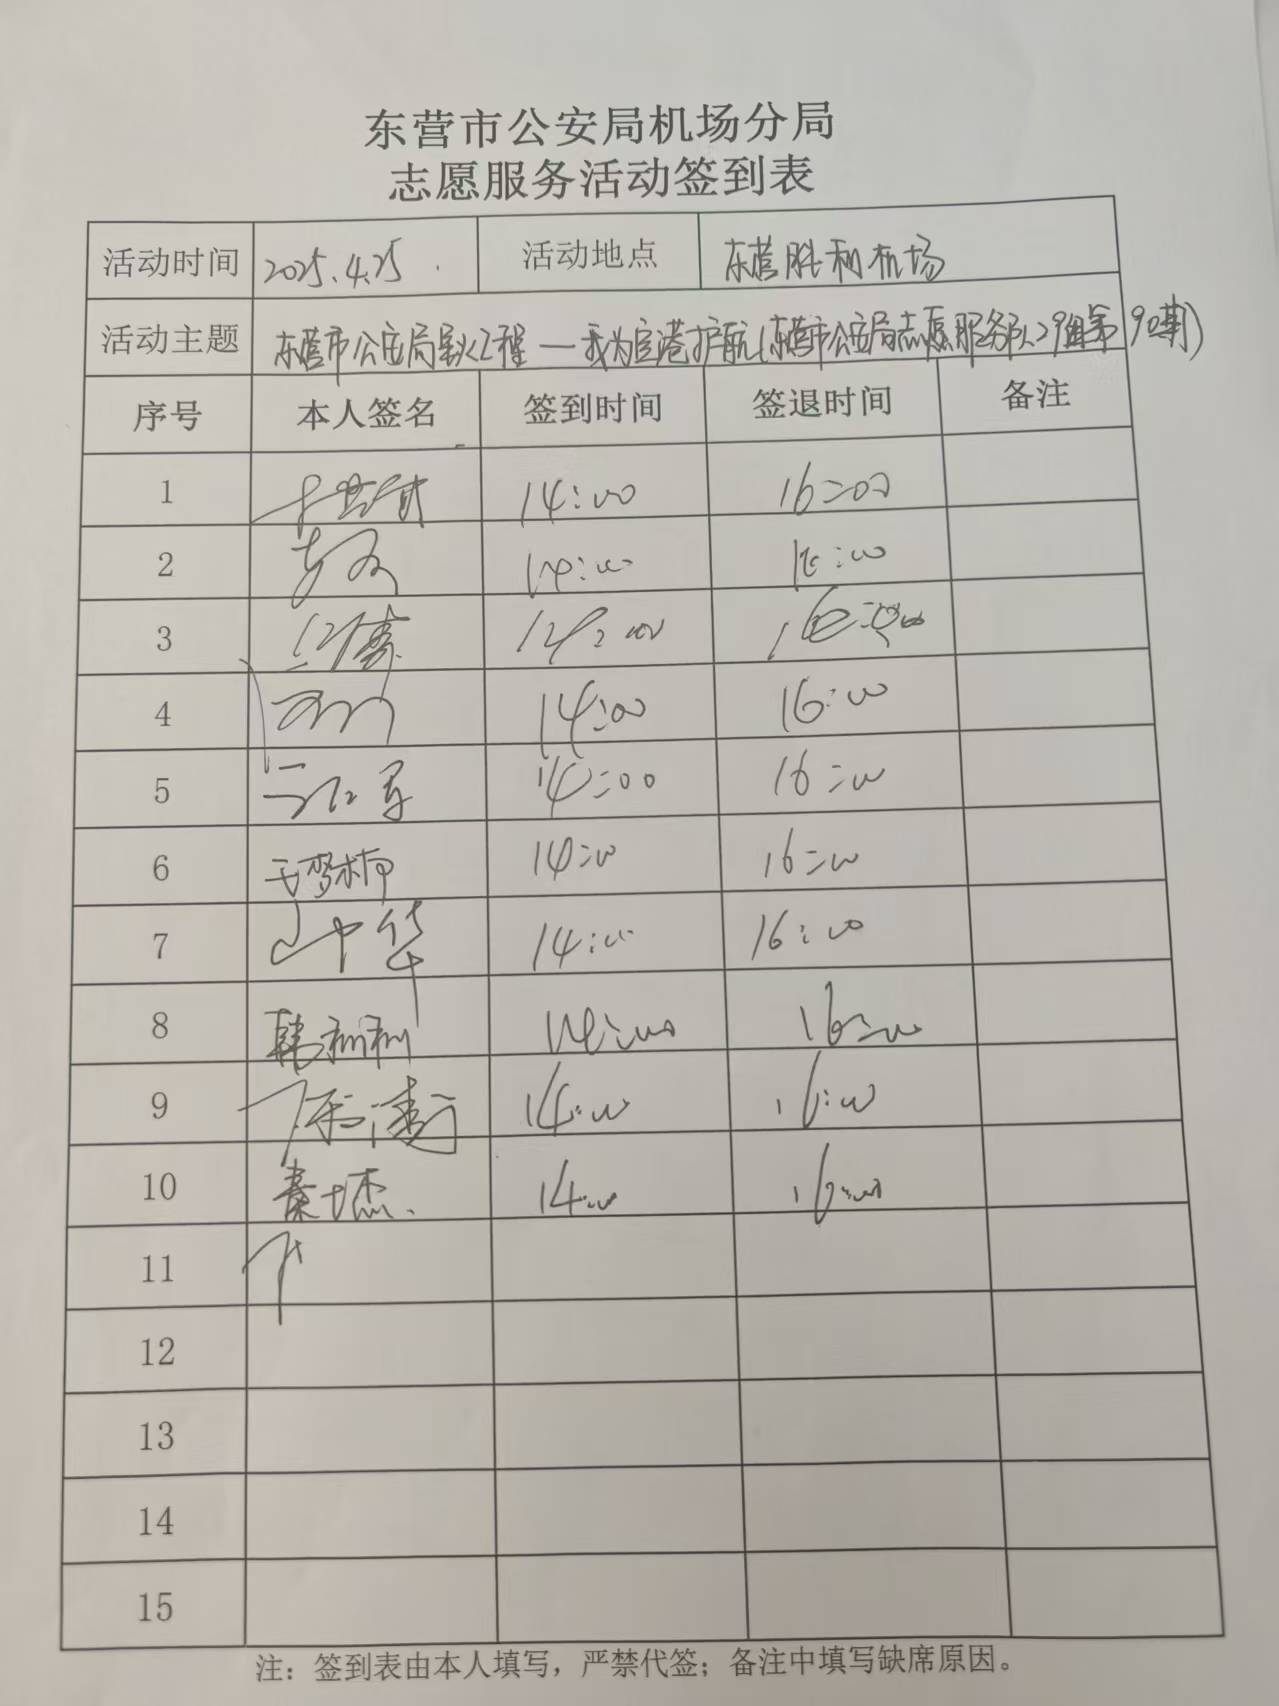 东营市公安局机场分局
志愿服务活动签到表
活动时间 2025.4.25. 活动地点 东营胜利机场
活动主题 东营市公安局星火工程—我为空港护航(东营市公安局志愿服务队29组第90期)
序号 本人签名 签到时间 签退时间 备注
1 14:00 16:00
2 14:00 16:00
3 14:00 16:00
4 14:00 16:00
5 14:00 16:00
6 王梦楠 14:00 16:00
7 14:00 16:00
8 韩利利 14:00 16:00
9 14:00 16:00
10 秦士杰. 14:00 16:00
11
12
13
14
15
注：签到表由本人填写，严禁代签；备注中填写缺席原因。